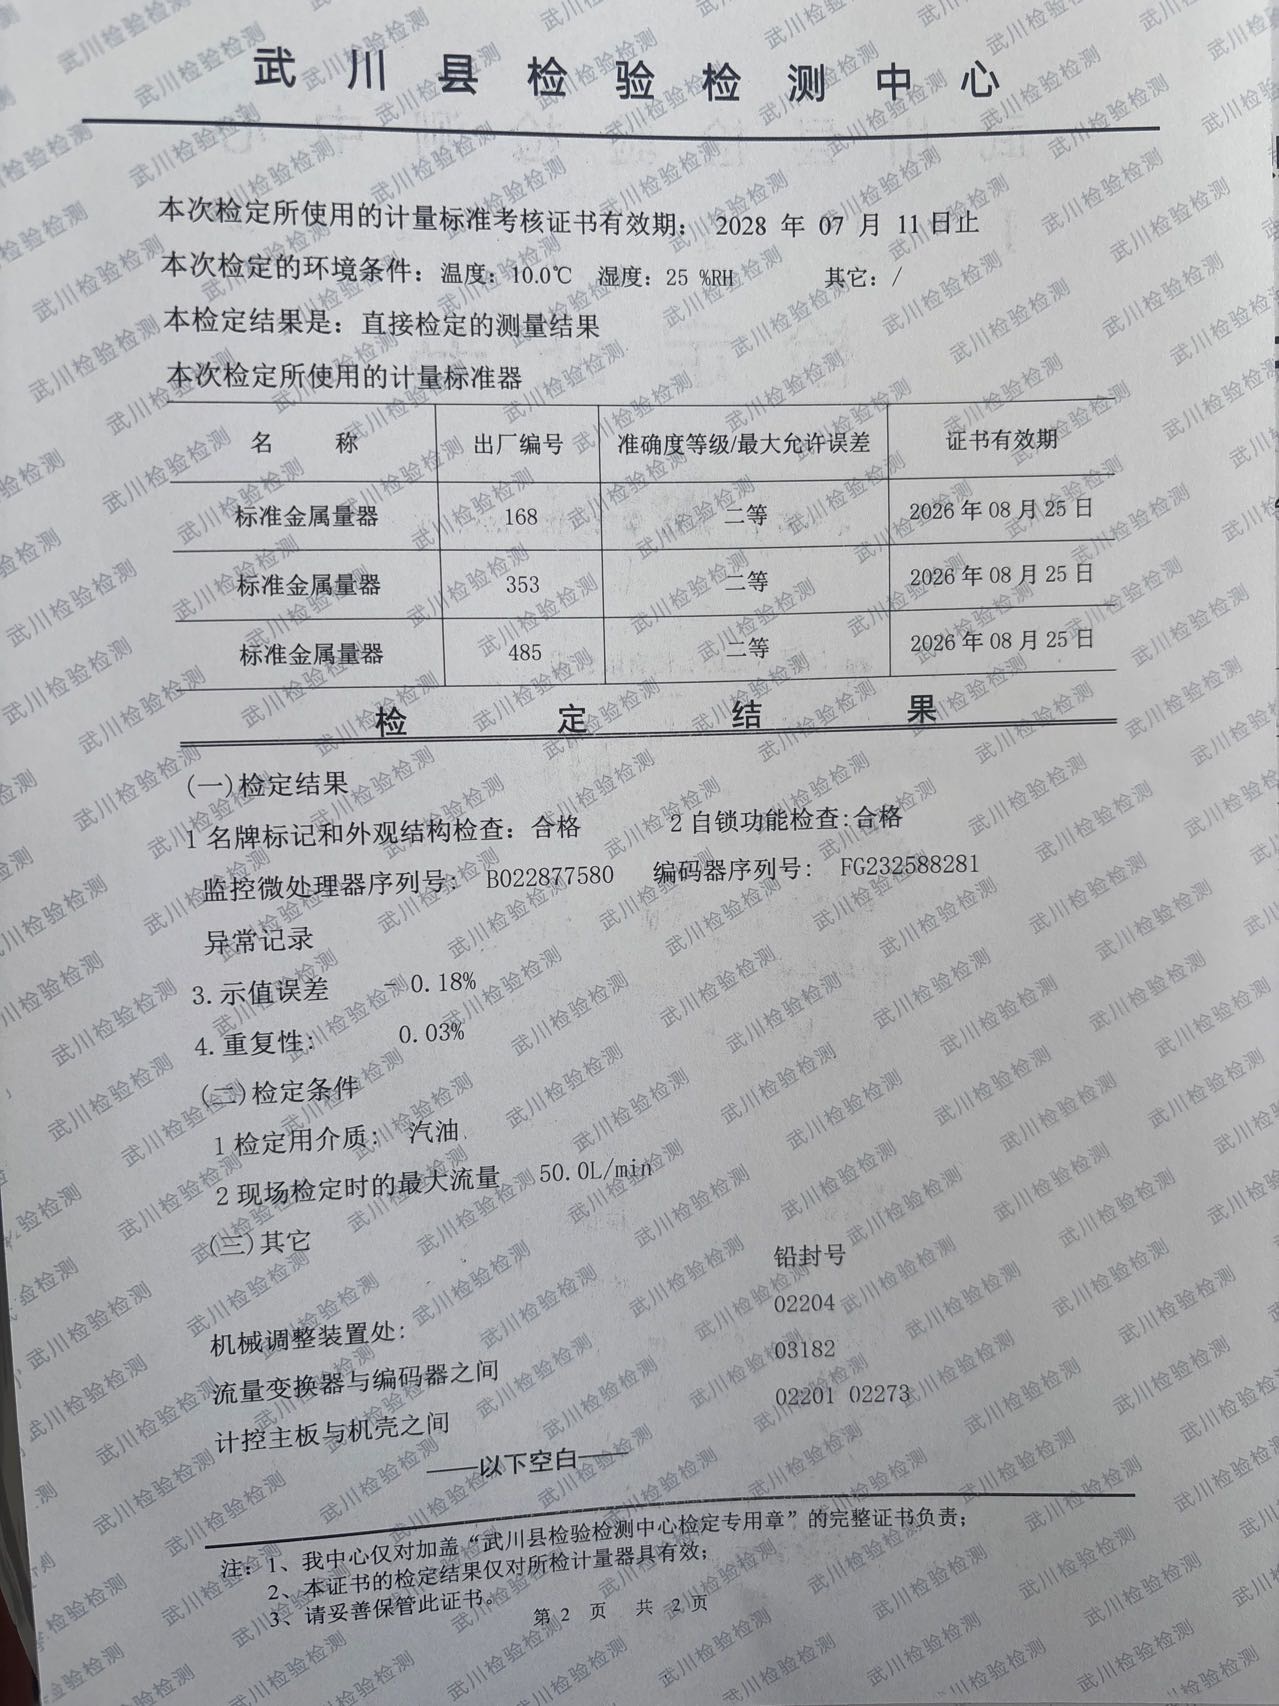 武川县检验检测中心
本次检定所使用的计量标准考核证书有效期： 2028 年 07 月 11日止
本次检定的环境条件：温度：10.0℃ 湿度：25 %RH 其它：/
本检定结果是：直接检定的测量结果
本次检定所使用的计量标准器
名 称 出厂编号 准确度等级/最大允许误差 证书有效期
标准金属量器 168 二等 2026 年 08 月 25 日
标准金属量器 353 二等 2026 年 08 月 25 日
标准金属量器 485 二等 2026 年 08 月 25 日
检 定 结 果
(一)检定结果
1 名牌标记和外观结构检查：合格 2 自锁功能检查:合格
监控微处理器序列号： B022877580 编码器序列号： FG232588281
异常记录
3. 示值误差 - 0.18%
4. 重复性： 0.03%
(二)检定条件
1 检定用介质： 汽油
2 现场检定时的最大流量 50.0L/min
(三)其它
铅封号
机械调整装置处： 02204
流量变换器与编码器之间 03182
计控主板与机壳之间 02201 02273
——以下空白——
注：1、我中心仅对加盖“武川县检验检测中心检定专用章”的完整证书负责；
2、本证书的检定结果仅对所检计量器具有效；
3、请妥善保管此证书。
第 2 页 共 2 页
武川检验检测